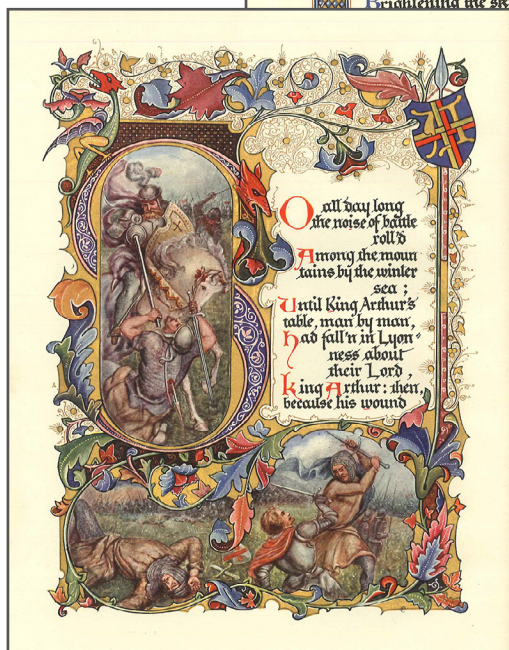 Brightening the sk
SO all day long
the noise of battle
roll'd
Among the moun
tains by the winter
sea ;
Until King Arthur's
table, man by man,
Had fall'n in Lyon-
ness about
their Lord,
King Arthur : then,
because his wound